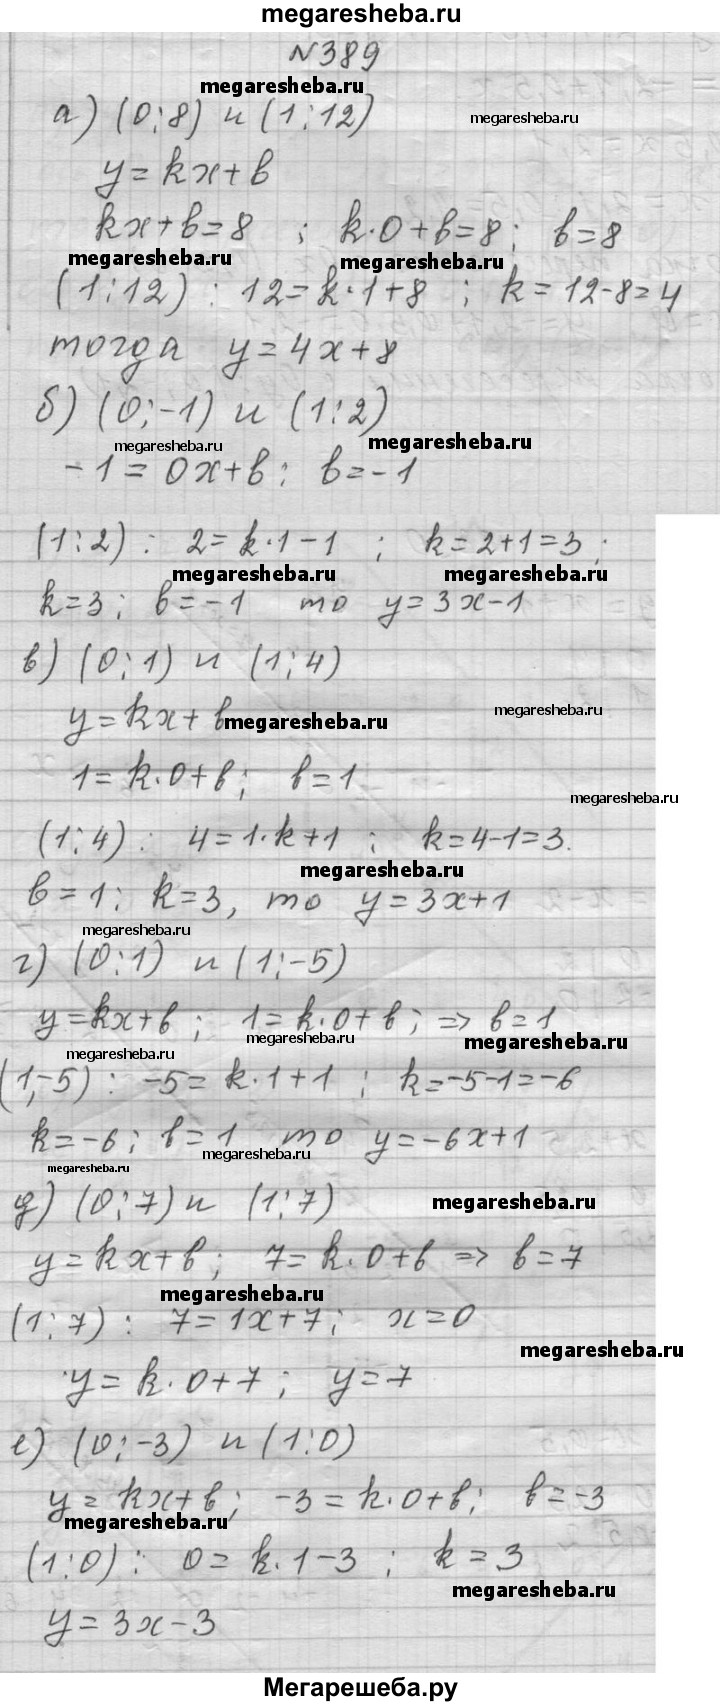 megaresheba.ru
N389
megaresheba.ru
а) (0;8) и (1;12)
megaresheba.ru
y=kx+b
kx+b=8 ; k·0+b=8; b=8
megaresheba.ru megaresheba.ru
(1;12) : 12=k·1+8 ; k=12-8=4
тогда y=4x+8
б) (0;-1) и (1;2)
megaresheba.ru megaresheba.ru
-1=0x+b; b=-1
(1;2) : 2=k·1-1 ; k=2+1=3;
megaresheba.ru megaresheba.ru
k=3; b=-1 то y=3x-1
в) (0;1) и (1;4)
megaresheba.ru
y=kx+b megaresheba.ru
1=k·0+b; b=1
megaresheba.ru
(1;4) : 4=1·k+1 ; k=4-1=3.
megaresheba.ru
b=1; k=3, то y=3x+1
megaresheba.ru
г) (0;1) и (1;-5)
y=kx+b; 1=k·0+b; => b=1
megaresheba.ru megaresheba.ru megaresheba.ru
(1,-5) : -5=k·1+1 ; k=-5-1=-6
k=-6; b=1 то y=-6x+1
megaresheba.ru megaresheba.ru
д) (0;7) и (1;7)
megaresheba.ru
y=kx+b; 7=k·0+b => b=7
megaresheba.ru
(1;7) : 7=1x+7; x=0
megaresheba.ru
y=k·0+7; y=7
е) (0;-3) и (1;0)
y=kx+b; -3=k·0+b; b=-3
megaresheba.ru
(1;0) : 0=k·1-3 ; k=3
megaresheba.ru
y=3x-3
Мегарешеба.ру